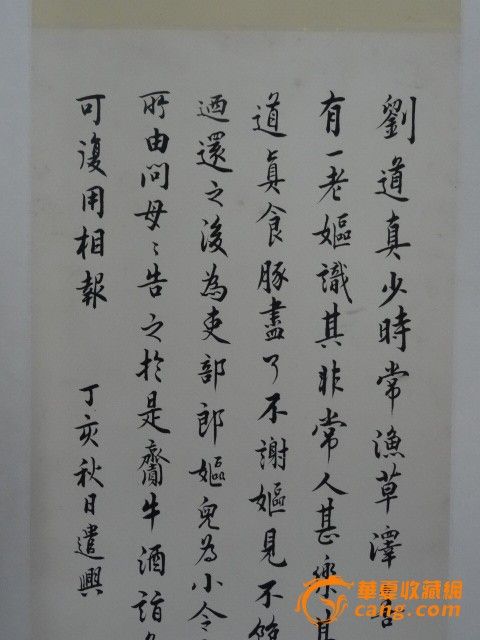 劉道真少時常漁草澤善
有一老嫗識其非常人甚樂其
道真食豚盡了不謝嫗見不飽
迺還之後為吏部郎嫗兒為小令
所由問母〻告之於是齎牛酒詣
可復用相報 丁亥秋日遣興
華夏收藏網
cang.com